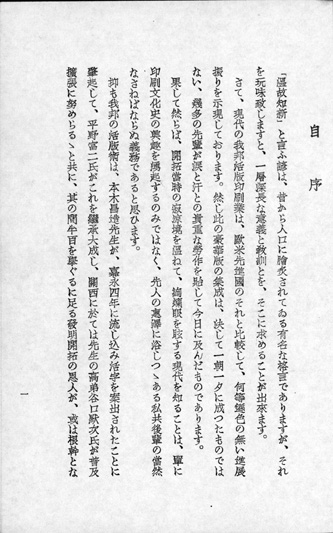 自序
「溫故知新」と言ふ諺は、昔から人口に膾炙されてゐる有名な格言でありますが、それ
を玩味致しますと、一層深長な意義と教訓とを、そこに求めることが出來ます。
さて、現代の我邦活版印刷業は、歐米先進國のそれと比較して、何等遜色の無い進展
振りを示現しております。然し此の豪華版の集成は、決して一朝一夕に成つたものでは
ない、幾多の先輩が淚と汗との貴重な勞作を貽して今日に及んだものであります。
果して然らば、開拓當時の寂寥境を溫ねて、絢爛眼を眩する現代を知ることは、單に
印刷文化史の興趣を喚起するのみではなく、先人の惠澤に浴しつゝある私共後輩の當然
なさねばならぬ義務であると思ひます。
抑も我邦の活版術は、本木昌造先生が、嘉永四年に流し込み活字を案出されたことに
肇起して、平野富二氏がこれを繼承大成し、關西に於ては先生の高弟谷口默次氏が普及
擴張に努めらるゝと共に、其の間牟百を擧ぐるに足る發明開拓の恩人が、或は根幹とな
一